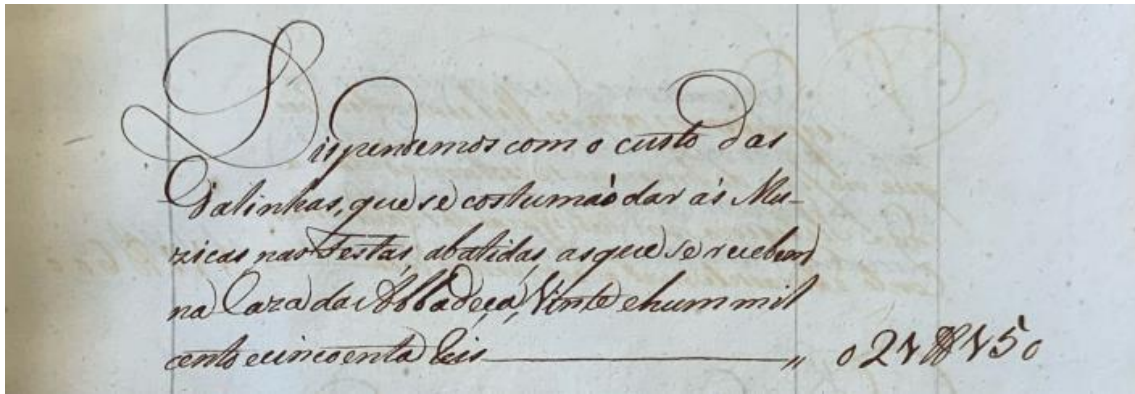 Dispendemos com o custo das
Galinhas, que se costumaõ dar ás Mu-
zicas nas Festas, abatidas as que se recebem
na Caza da Abbadeça, Vinte e hum mil
cento e cincoenta Reis ———— " 021$150